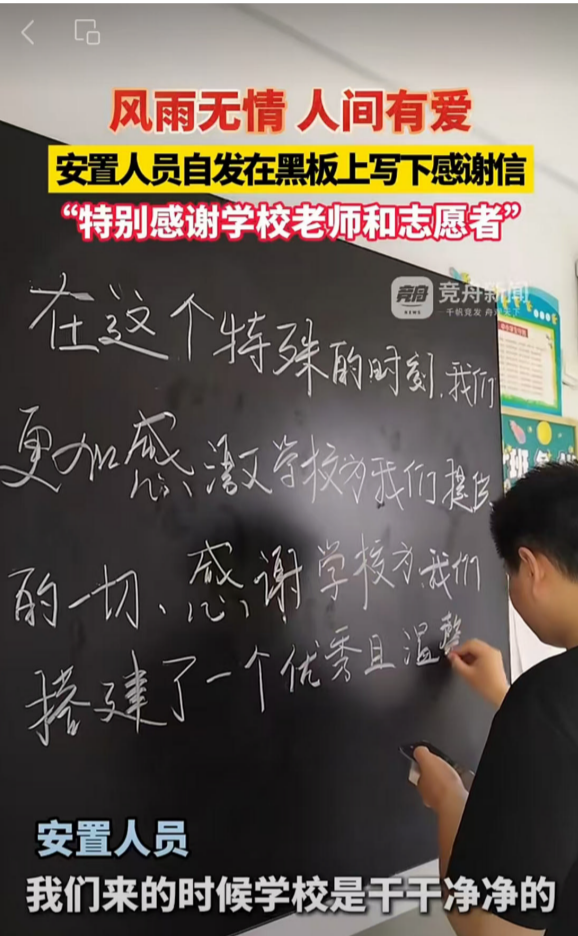 风雨无情 人间有爱
安置人员自发在黑板上写下感谢信
“特别感谢学校老师和志愿者”
竞舟 NEWS 竞舟新闻
千帆竞发 舟观天下
在这个特殊的时刻，我们
更加感激学校为我们提供
的一切、感谢学校为我们
搭建了一个优秀且温馨
安置人员
我们来的时候学校是干干净净的